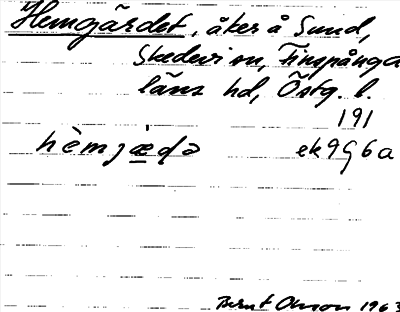 Hemgärdet, åker å Sund,
Skedevi sn, Finspånga
läns hd, Östg. l.
191
hèmjæ̣̀ḍə ek 9G6a
Bernt Olsson 1963